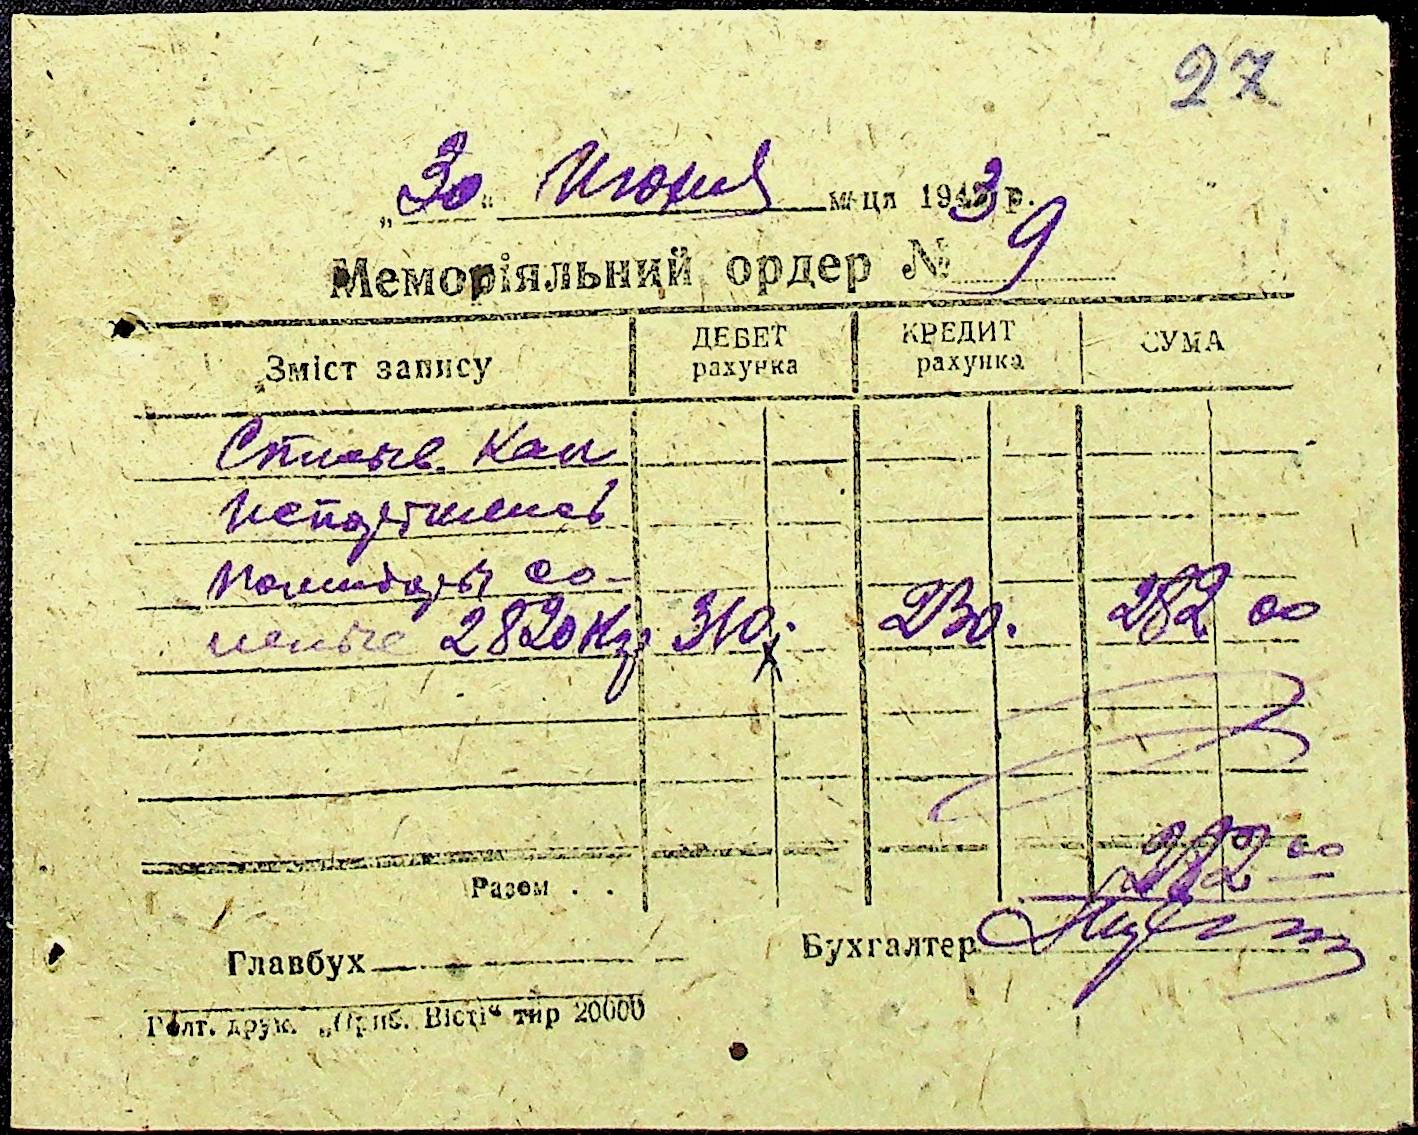 27
„30“ Июня м-ця 1943 р.
Меморіяльний ордер № 9
Зміст запису
ДЕБЕТ рахунка
КРЕДИТ рахунка
СУМА
Списыв. Как
помидоры со-
леные 2820 кг 310. 230. 282 00
Разом . . 282 00
Главбух
Бухгалтер
Голт. друк. „Приб. Вісті“ тир 20000